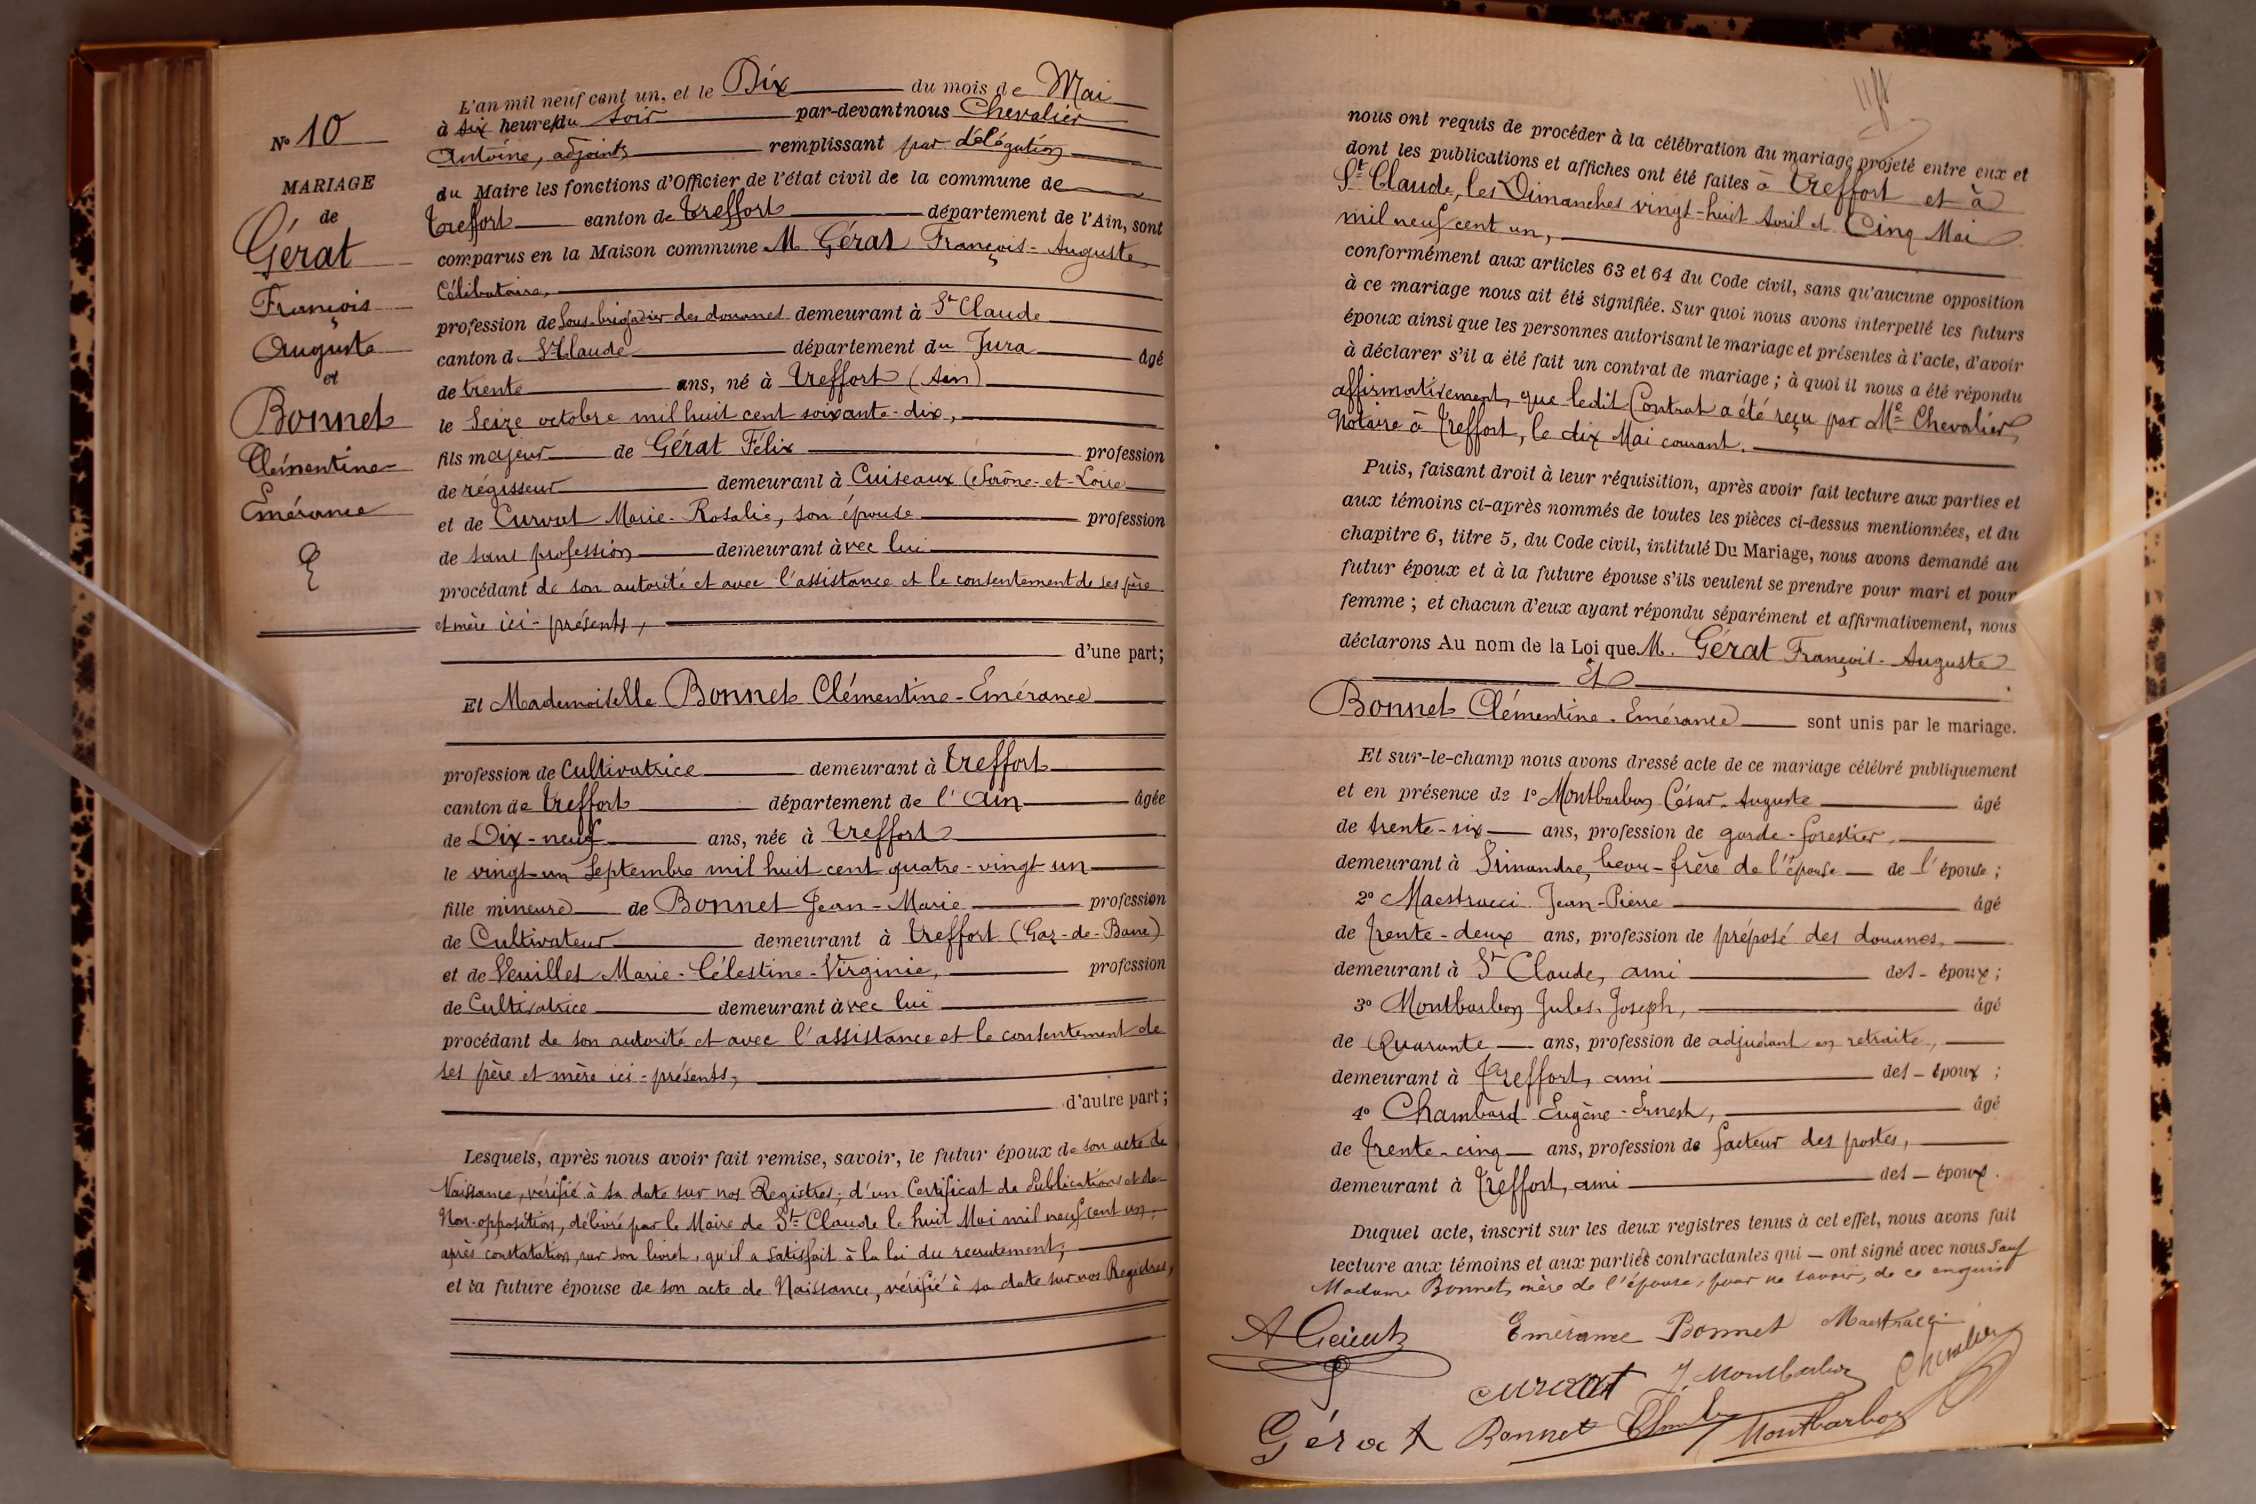 N° 10
MARIAGE
de
Gérat
François
Auguste
et
Bonnet
Clémentine
Emérance
L'an mil neuf cent un, et le Dix du mois de Mai
à six heures du soir par-devant nous Chevalier
Antoine, adjoint remplissant par délégation
du Maire les fonctions d'Officier de l'état civil de la commune de
Treffort canton de Treffort département de l'Ain, sont
comparus en la Maison commune M Gérat François-Auguste
Célibataire,
profession de Sous-brigadier des douanes demeurant à St Claude
canton de St Claude département du Jura âgé
de trente ans, né à Treffort (Ain)
le Seize octobre mil huit cent soixante-dix,
fils majeur de Gérat Félix profession
de régisseur demeurant à Cuiseaux (Saône-et-Loire
et de Curvat Marie-Rosalie, son épouse profession
de sans profession demeurant avec lui
procédant de son autorité et avec l'assistance et le consentement de ses père
et mère ici-présents,
d'une part;
Et Mademoiselle Bonnet Clémentine-Emérance
profession de Cultivatrice demeurant à Treffort
canton de Treffort département de l'Ain âgée
de Dix-neuf ans, née à Treffort
le vingt-un Septembre mil huit cent quatre-vingt un
fille mineure de Bonnet Jean-Marie profession
de Cultivateur demeurant à Treffort
et de Veuillet Marie-Célestine-Virginie, profession
de Cultivatrice demeurant avec lui
procédant de son autorité et avec l'assistance et le consentement de
ses père et mère ici-présents,
d'autre part;
Lesquels, après nous avoir fait remise, savoir, le futur époux de son acte de
Naissance, vérifié à sa date sur nos Registres; d'un Certificat de Publications et de
Non-opposition, délivré par le Maire de St Claude le huit Mai mil neuf cent un,
après constatation, sur son livret, qu'il a satisfait à la loi du recrutement,
et la future épouse de son acte de Naissance, vérifié à sa date sur nos Registres,
nous ont requis de procéder à la célébration du mariage projeté entre eux et
dont les publications et affiches ont été faites à Treffort et à
St Claude, les Dimanches vingt-huit Avril et Cinq Mai
mil neuf cent un,
conformément aux articles 63 et 64 du Code civil, sans qu'aucune opposition
à ce mariage nous ait été signifiée. Sur quoi nous avons interpellé les futurs
époux ainsi que les personnes autorisant le mariage et présentes à l'acte, d'avoir
à déclarer s'il a été fait un contrat de mariage; à quoi il nous a été répondu
affirmativement, que ledit Contrat a été reçu par Me Chevalier,
Notaire à Treffort, le dix Mai courant.
Puis, faisant droit à leur réquisition, après avoir fait lecture aux parties et
aux témoins ci-après nommés de toutes les pièces ci-dessus mentionnées, et du
chapitre 6, titre 5, du Code civil, intitulé Du Mariage, nous avons demandé au
futur époux et à la future épouse s'ils veulent se prendre pour mari et pour
femme; et chacun d'eux ayant répondu séparément et affirmativement, nous
déclarons Au nom de la Loi que M. Gérat François-Auguste
Et
Bonnet Clémentine-Emérance sont unis par le mariage.
Et sur-le-champ nous avons dressé acte de ce mariage célébré publiquement
et en présence de 1° Montbarbon César-Auguste âgé
de trente-six ans, profession de garde-forestier,
demeurant à Simandre, beau-frère de l'épouse de l'épouse;
2° Maestracci Jean-Pierre âgé
de trente-deux ans, profession de préposé des douanes,
demeurant à St Claude, ami des époux;
3° Montbarbon Jules-Joseph, âgé
de Quarante ans, profession de adjudant en retraite,
demeurant à Treffort, ami des époux;
4° Chambard Eugène-Ernest, âgé
de trente-cinq ans, profession de facteur des postes,
demeurant à Treffort, ami des époux.
Duquel acte, inscrit sur les deux registres tenus à cet effet, nous avons fait
lecture aux témoins et aux parties contractantes qui ont signé avec nous Sauf
Madame Bonnet, mère de l'épouse, pour ne savoir, de ce enquis
Emérance Bonnet Maestracci
Curvat J Montbarbon Chevalier
Gérat Bonnet Montbarbon